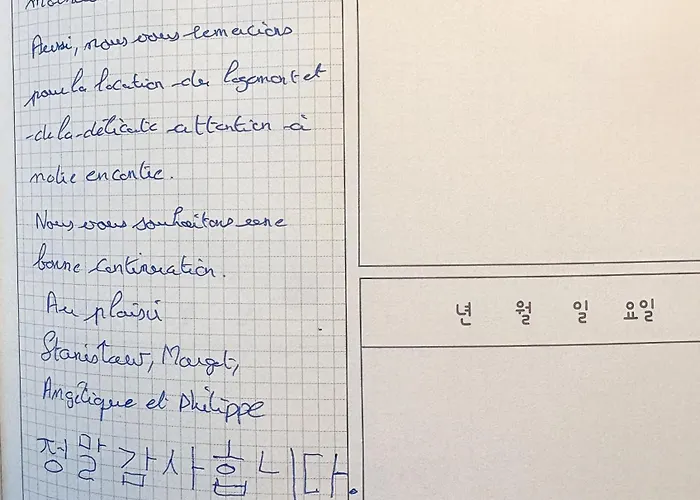 Aussi, nous vous remercions
pour la location du logement et
de la délicate attention à
notre encontre.
Nous vous souhaitons une
bonne continuation.
Au plaisir
Stanislaw, Margot,
Angélique et Philippe
정말 감사합니다.
년 월 일 요일